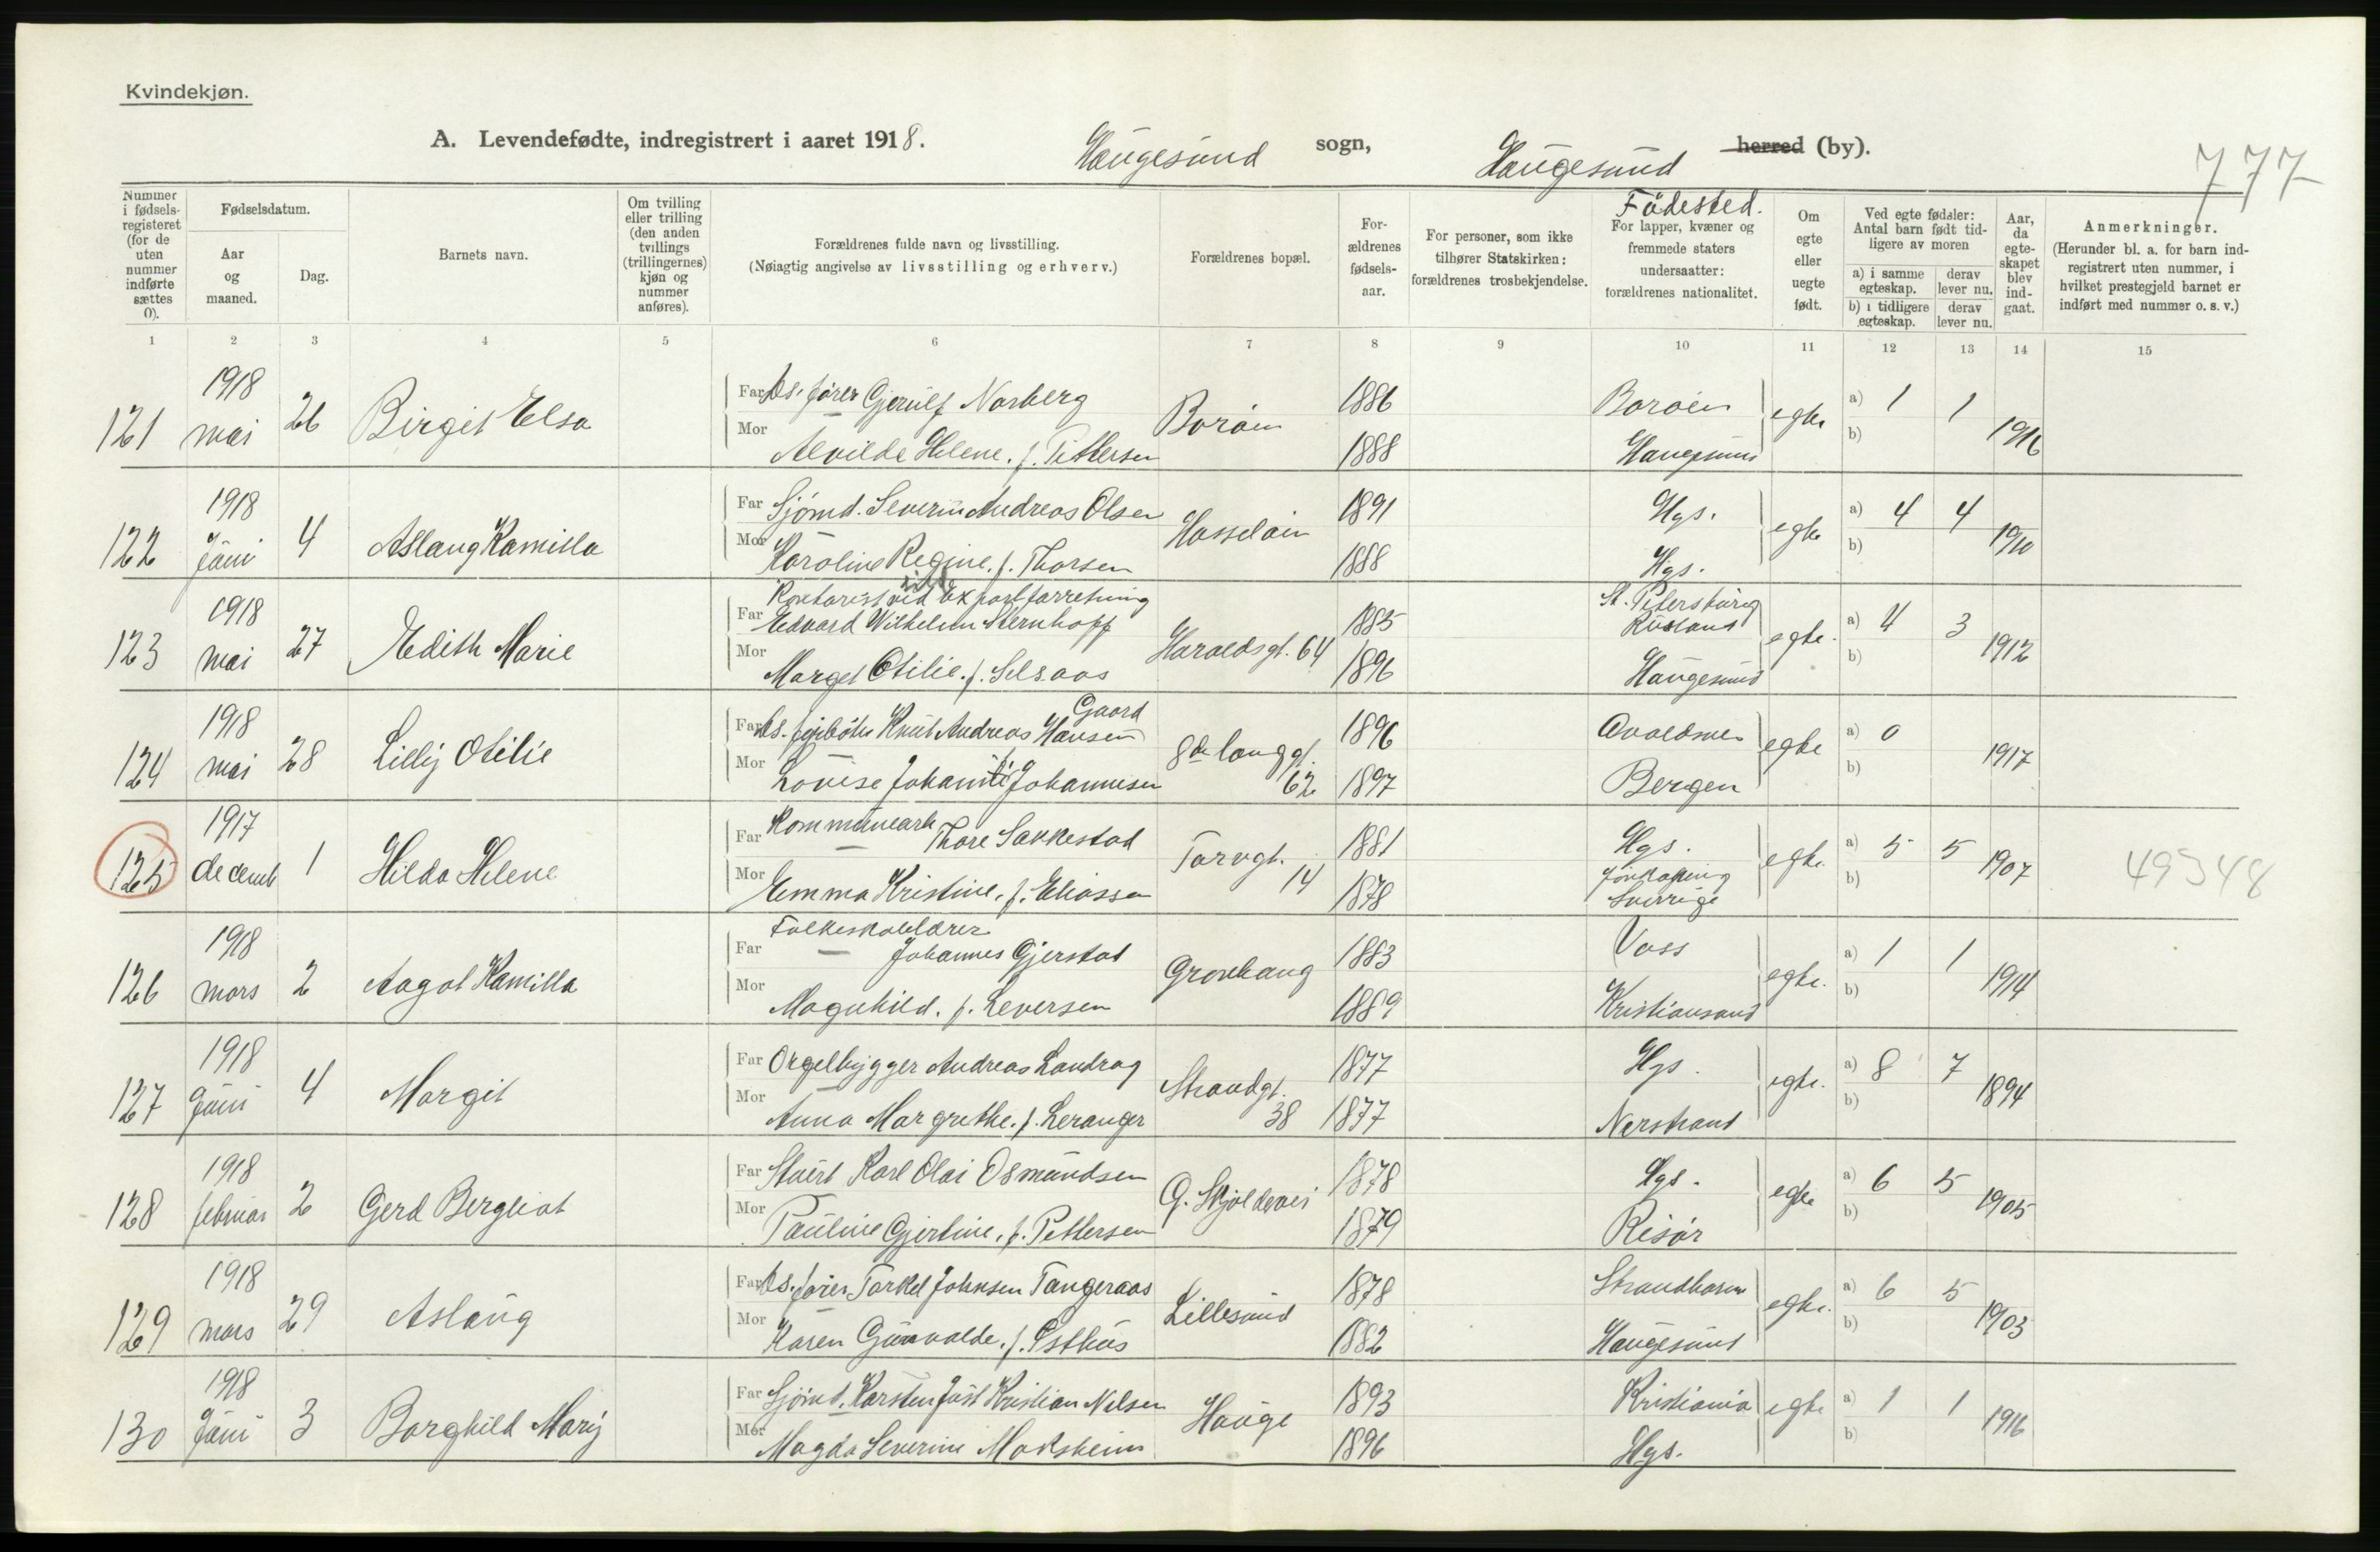 Kvindekjøn.
A. Levendefødte, indregistrert i aaret 1918. Haugesund sogn, Haugesund herred (by).
777
Nummer i fødselsregisteret (for de uten nummer indførte sættes 0).
Fødselsdatum.
Aar og maaned.
Dag.
Barnets navn.
Om tvilling eller trilling (den anden tvillings (trillingernes) kjøn og nummer anføres).
Forældrenes fulde navn og livsstilling.
(Nøiagtig angivelse av livsstilling og erhverv.)
Forældrenes bopæl.
Forældrenes fødselsaar.
For personer, som ikke tilhører Statskirken: forældrenes trosbekjendelse.
Födested.
For lapper, kvæner og fremmede staters undersaatter: forældrenes nationalitet.
Om egte eller uegte født.
Ved egte fødsler: Antal barn født tidligere av moren
a) i samme egteskap. derav lever nu.
b) i tidligere egteskap. derav lever nu.
Aar, da egteskapet blev indgaat.
Anmerkninger.
(Herunder bl. a. for barn indregistrert uten nummer, i hvilket prestegjeld barnet er indført med nummer o. s. v.)
1 2 3 4 5 6 7 8 9 10 11 12 13 14 15
121 1918 mai 26 Birgit Elsa
Far Ds. fører Gjerulf Norberg 1886 Boröen
Mor Alvilde Helene. f. Pettersen Boröen 1888 Haugesund
egte a) 1 1 b) 1916
122 1918 Juni 4 Aslaug Kamilla
Far Sjömd. Severin Andreas Olsen 1891 Hgs.
Mor Karoline Regine. f. Thorsen Hasseløen 1888 Hgs.
egte a) 4 4 b) 1910
123 1918 mai 27 Edith Marie
Kontorist ved exportforretning
Far Edvard Wilhelm Sternhoff 1885 St. Petersburg Rusland
Mor Marget Otilie. f. Selsaas Haraldsgt. 64 1896 Haugesund
egte. a) 4 3 b) 1912
124 1918 mai 28 Lilly Otilie
Far Ds. fyrböter Knut Andreas Hansen Gaard 1896 Avaldsnes
Mor Lovise Johannesen 8de langgt. 62 1897 Bergen
egte a) 0 b) 1917
125 1917 decemb 1 Hilda Helene
Far Kommunearb Thore Sakkestad 1881 Hgs.
Mor Emma Kristine. f. Eliassen Torvgt. 14 1878 Jönkøping Sverrige
egte. a) 5 5 b) 1907 49548
126 1918 mars 2 Aagot Kamilla
Folkeskolelærer
Far Johannes Gjerstad 1883 Voss
Mor Magnhild. f. Leversen Gronhaug 1889 Kristiansand
egte. a) 1 1 b) 1914
127 1918 Juni 4 Margit
Far Orgelbygger Andreas Landrag 1877 Hgs.
Mor Anna Margrethe. f. Leranger Strandgt. 38 1877 Nerstrand
egte. a) 8 7 b) 1894
128 1918 februar 2 Gerd Bergliot
Far Stuert Karl Olai Osmundsen 1878 Hgs.
Mor Pauline Gjertine. f. Pettersen G. Skjoldevei 1879 Risör
egte a) 6 5 b) 1905
129 1918 mars 29 Aslaug
Far Ds. fører Torkel Johnsen Tangeraas 1878 Strandbarm
Mor Karen Gunvalde. f. Østhus Lillesund 1882 Haugesund
egte. a) 6 5 b) 1903
130 1918 Juni 3 Borghild Marij
Far Sjömd. Karsten Just Kristian Nilsen 1893 Kristiania
Mor Magda Severine Moksheim Hauge 1896 Hgs.
egte a) 1 1 b) 1916